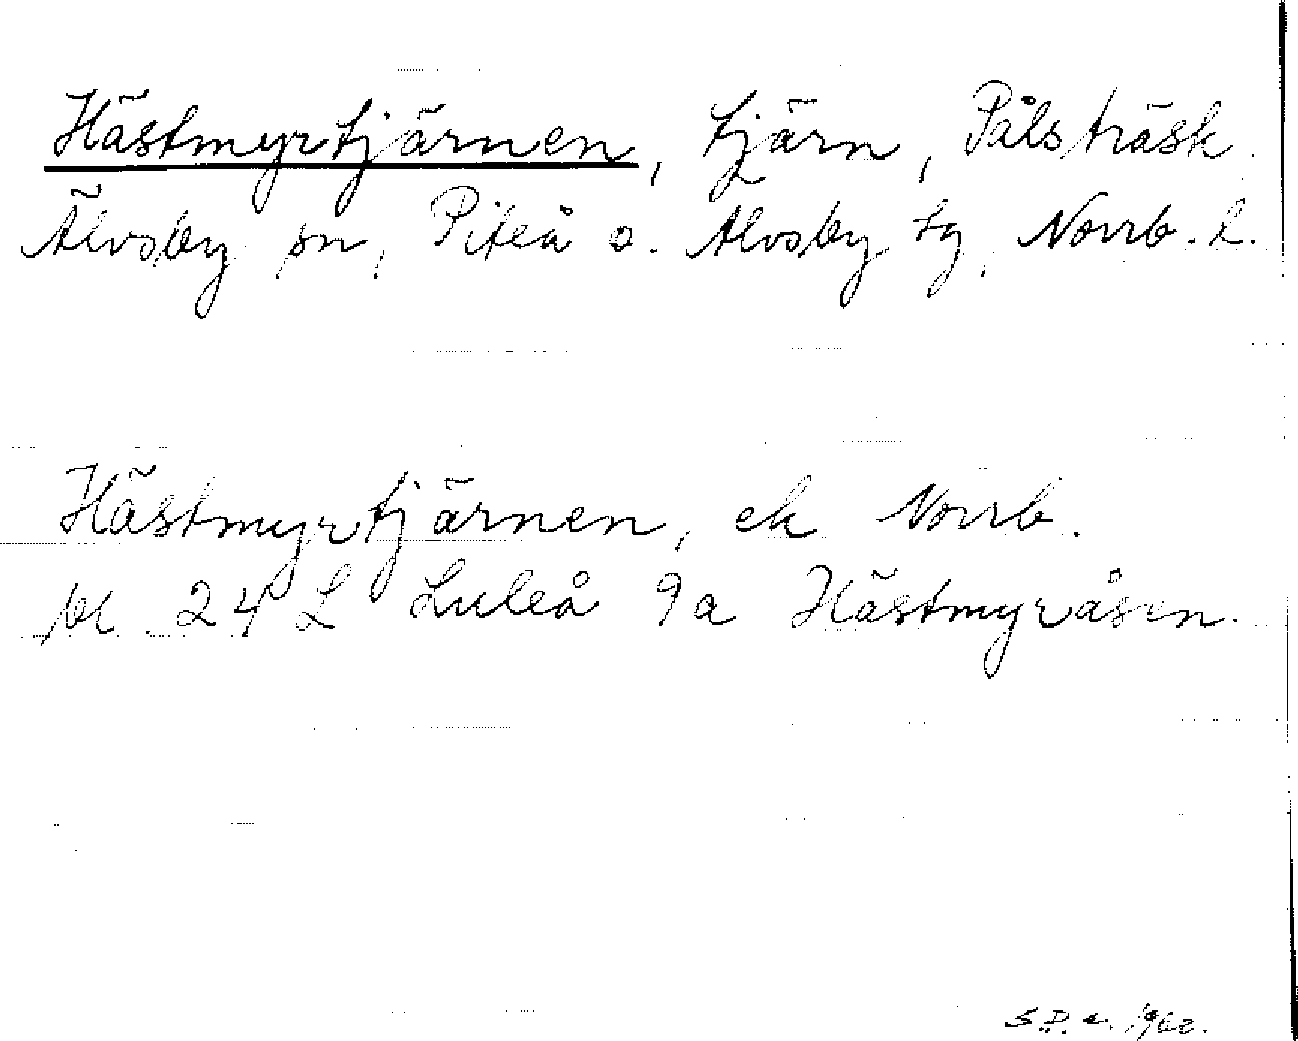 Hästmyrtjärnen, tjärn, Pålsträsk.
Älvsby sn, Piteå o. Älvsby tg, Norrb. l.
Hästmyrtjärnen, ek Norrb.
bl 24 L Luleå 9a Hästmyråsen.
1962.